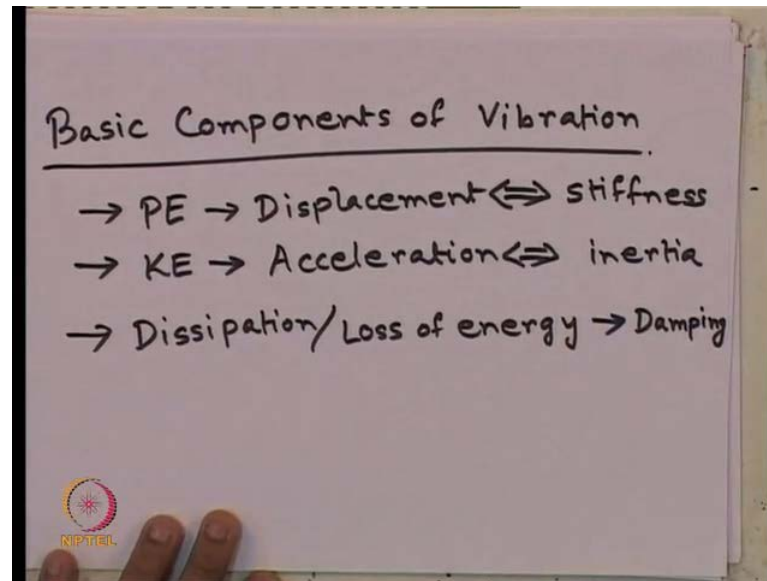 Basic Components of Vibration.
→ PE → Displacement ⇔ stiffness
→ KE → Acceleration ⇔ inertia
→ Dissipation/Loss of energy → Damping
NPTEL